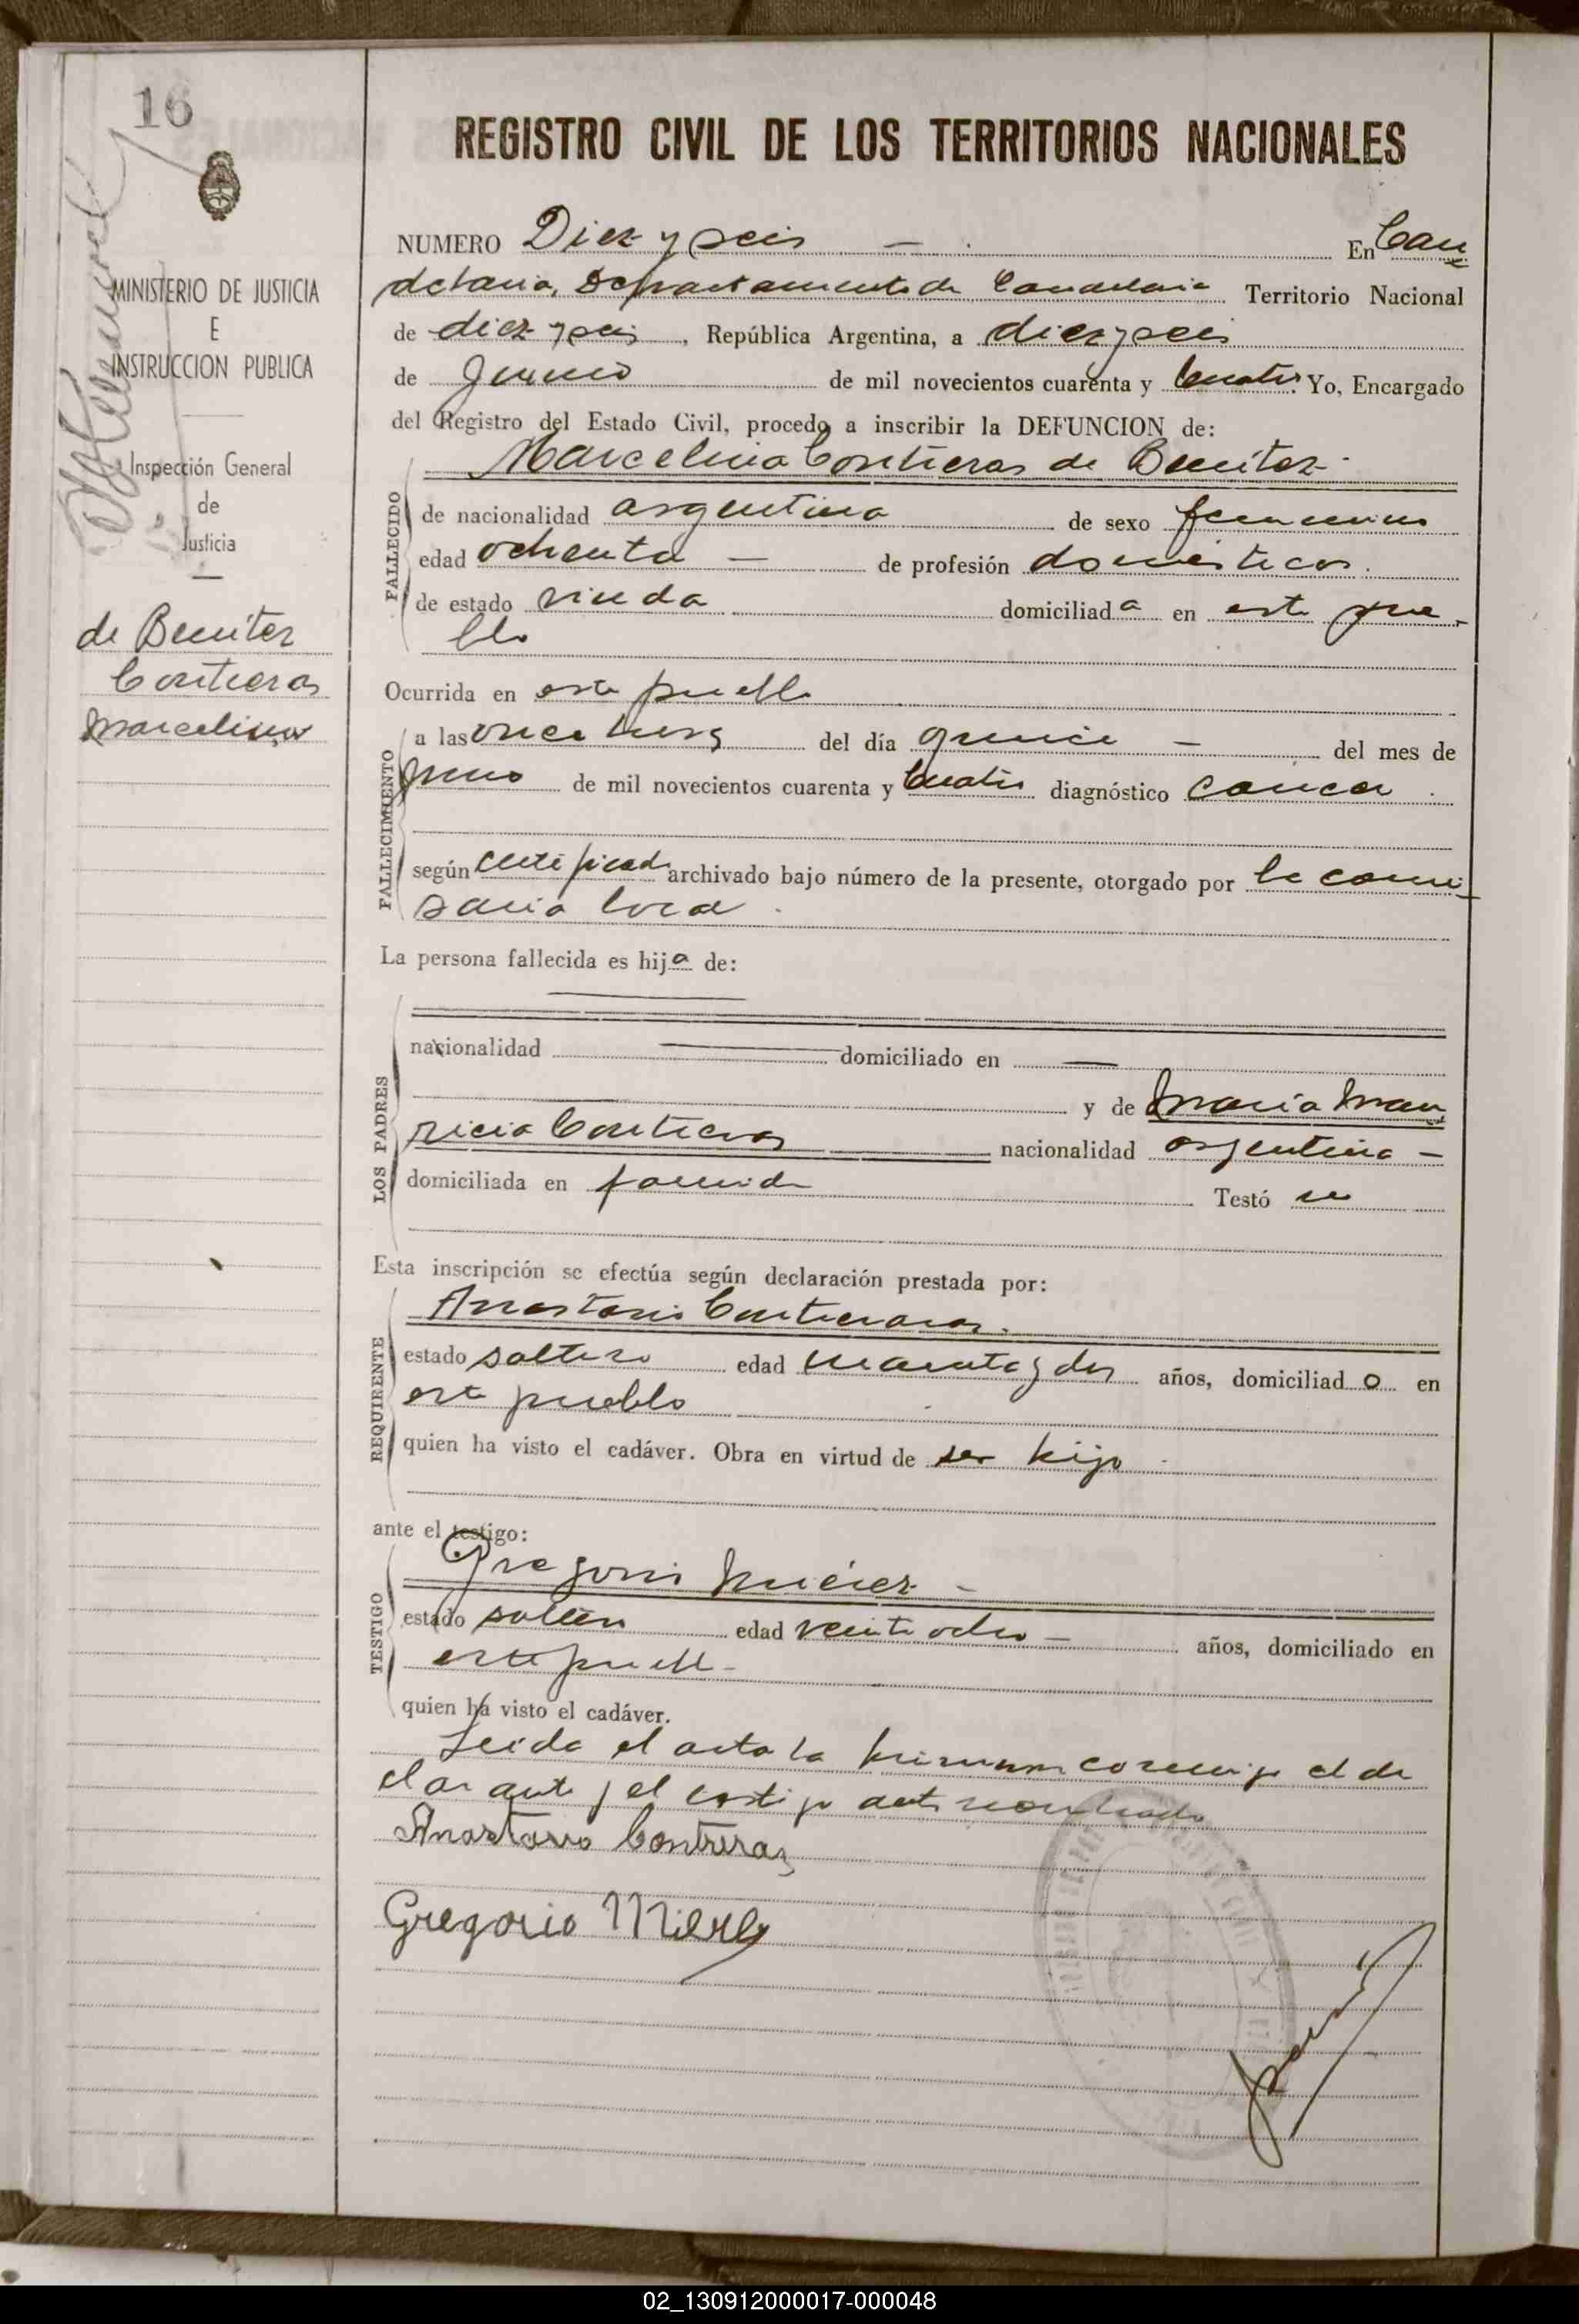 16
REGISTRO CIVIL DE LOS TERRITORIOS NACIONALES
MINISTERIO DE JUSTICIA
E
INSTRUCCION PUBLICA
Inspección General
de
Justicia
de Benitez
Contreras
Marcelina
NUMERO Diez y seis — En Can
delaria, Departamento de Candelaria Territorio Nacional
de diez y seis, República Argentina, a diez y seis
de Junio de mil novecientos cuarenta y Cuatro Yo, Encargado
del Registro del Estado Civil, procedo a inscribir la DEFUNCION de:
Marcelina Contreras de Benitez
FALLECIDO
de nacionalidad argentina de sexo femenino
edad ochenta — de profesión domesticos
de estado viuda domiciliada en este pue-
blo
Ocurrida en este pueblo
FALLECIMIENTO
a las once horas del día quince — del mes de
Junio de mil novecientos cuarenta y Cuatro diagnóstico cancer
según certificado archivado bajo número de la presente, otorgado por la comi-
saria local
La persona fallecida es hija de:
LOS PADRES
nacionalidad — domiciliado en —
y de Maria Mau
ricia Contreras nacionalidad argentina —
domiciliada en Testó no
Esta inscripción se efectúa según declaración prestada por:
REQUIRENTE
Anastacio Contreras
estado soltero edad cuarenta y dos años, domiciliado en
este pueblo
quien ha visto el cadáver. Obra en virtud de ser hijo
ante el testigo:
TESTIGO
Gregorio
estado soltero edad veinti ocho — años, domiciliado en
este pueblo
quien ha visto el cadáver.
Leida el acta la firman conmigo el de
clarante y el testigo
Anastacio Contreras
Gregorio
02_130912000017-000048